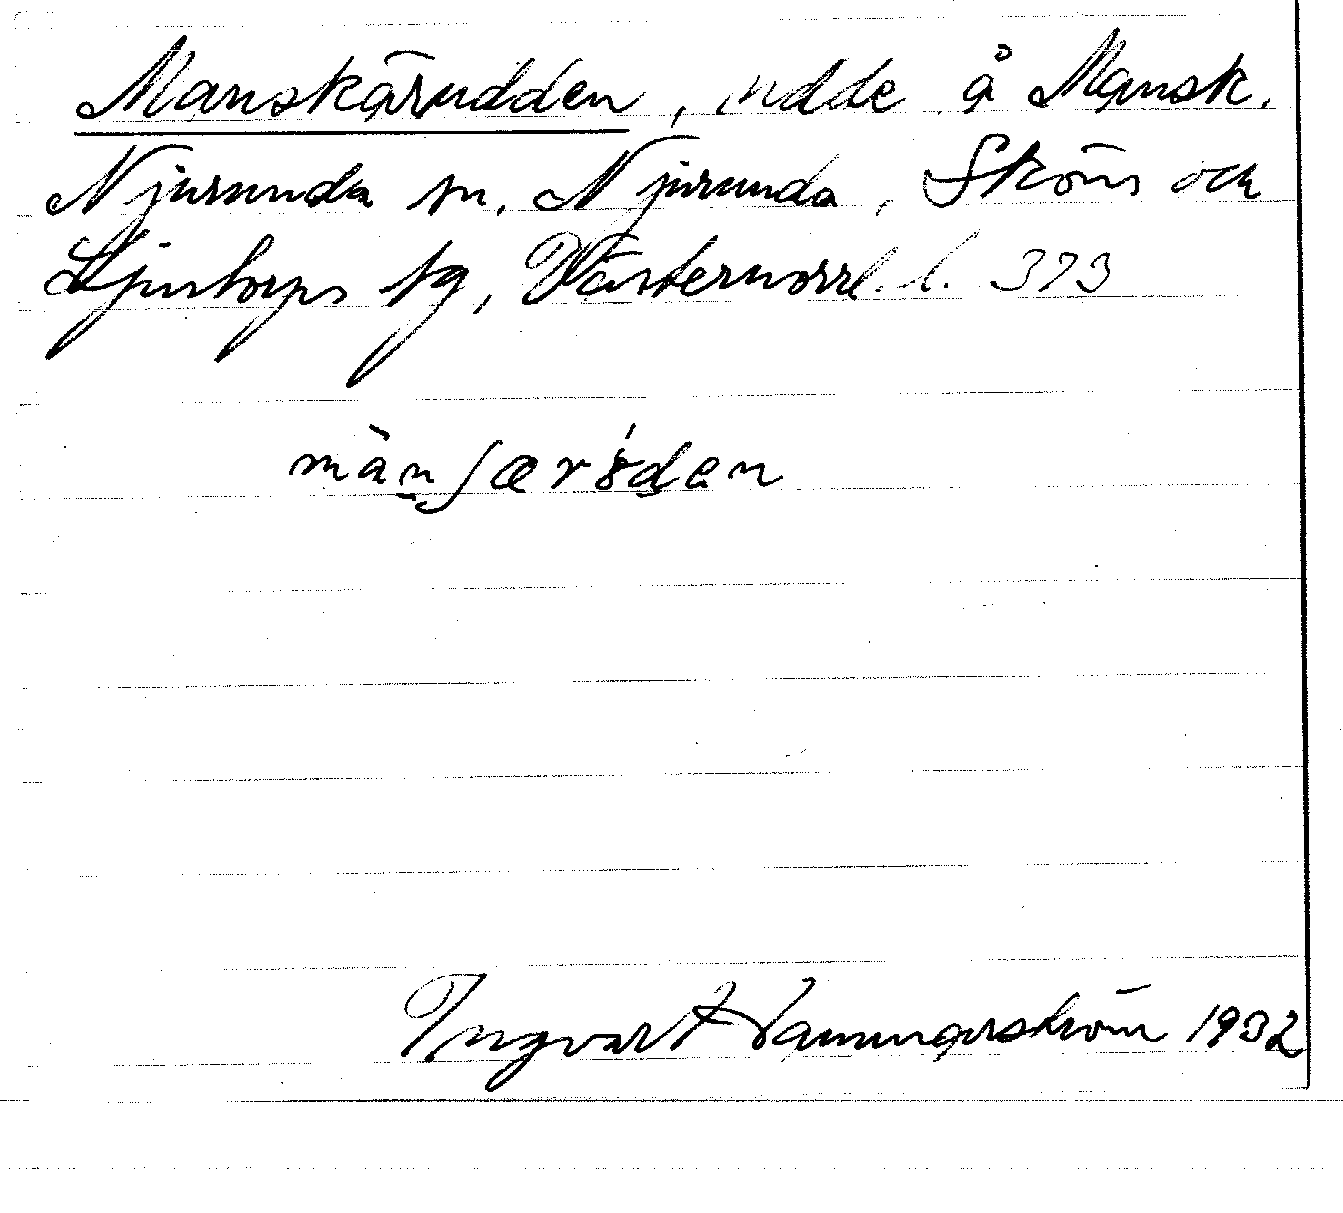 Manskärudden, udde å Mansk.
Njurunda sn. Njurunda, Sköns och
Ljustorps tg, Västernorrl. l. 373
mànʃærúden
Ingvar Hammarström 1932